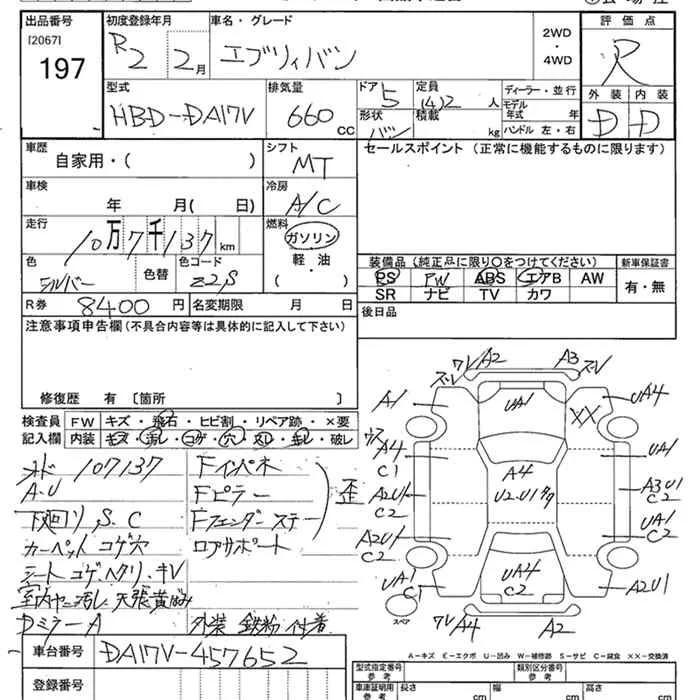 出品番号
[2067]
197
初度登録年月
R2 2月
車名・グレード
エブリィバン
2WD
・
4WD
評価点
R
外装 内装
D D
型式
HBD-DA17V
排気量
660 CC
ドア 5
形状 バン
定員 (4)2 人
積載 kg
ディーラー・並行
モデル年式 年
ハンドル 左・右
車歴
自家用・( )
シフト
MT
セールスポイント(正常に機能するものに限ります)
車検
年 月( 日)
冷房
A/C
走行
10万7千137km
燃料
ガソリン
軽・油
( )
色
シルバー
色替
色コード
Z2S
装備品(純正品に限り○をつけてください)
PS PW ABS エアB AW
SR ナビ TV カワ
新車保証書
有・無
R券 8400円
名変期限 月 日
後日品
注意事項申告欄(不具合内容等は具体的に記入して下さい)
修復歴 有 〔箇所 〕
検査員記入欄
FW キズ・飛石・ヒビ割・リペア跡・×要
内装 キズ・汚し・コゲ・穴・スレ・無し・破レ
メーター 107137
A・U
下廻りS、C
カーペット コゲ穴
シート コゲ、ヘタリ、キレ
室内ヤニ汚し 天張黄ばみ
DミラーA
Fインパネ
Fピラー
Fフェンダーステー
歪
ロアサポート
外装 鉄粉付着
ワレ A2
A3 ズレ
ズレ
A1
UA1
XX
UA4
A4
C1
A4
U2・U1
UA1
A2U1
C2
A3U1
C2
UA1
C2
A2U1
C2
UA1
C1
UA4
C2
A2U1
スペア
ワレ A4
A2
A-キズ E-エクボ U-凹み W-補修跡 S-サビ C-腐食 ××-交換済
車台番号
DA17V-457652
登録番号
型式指定番号
参考
類別区分番号
参考
車庫証明用
参考
長さ cm
幅 cm
高さ cm